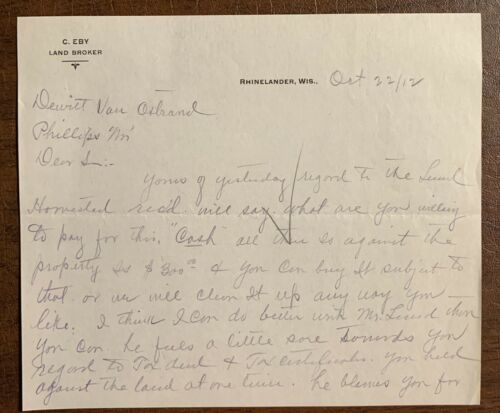 C. EBY
LAND BROKER
RHINELANDER, WIS., Oct 22/12
Dewitt Van Ostrand
Phillips Wis
Dear Sir:-
Yours of yesterday regard to the
Homestead rec'd. will say. what are you willing
to pay for this, "Cash" all there is against the
property Is $ & you can buy It subject to
that or we will clean It up any way you
like. I think I can do better with Mr. than
you can. he feels a little sore towards you
regard to Tax deed & Tax certificates. you held
against the land at one time. he blames you for